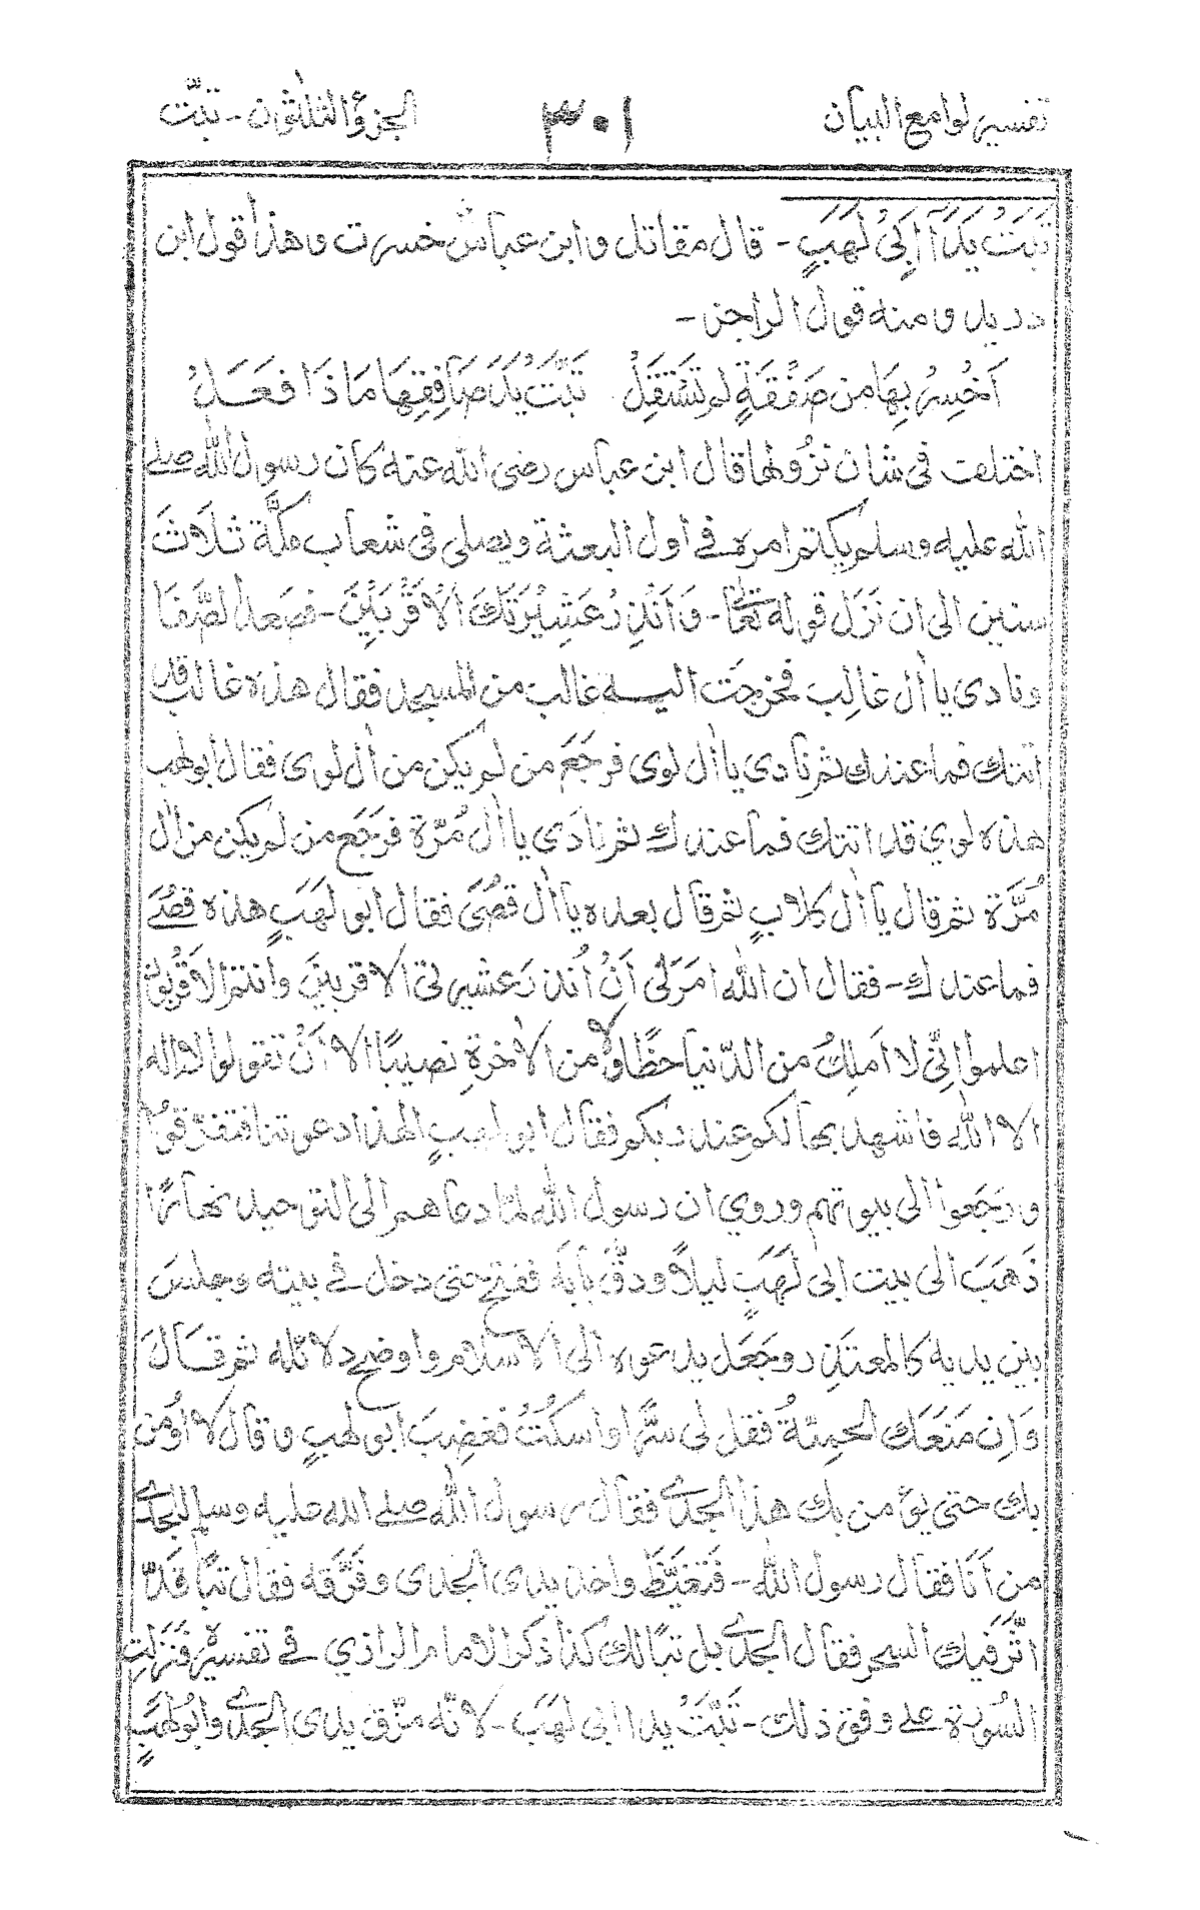 تفسير لوامع البيان ٣٠١ الجزء الثلاثون - تبّت
تَبَّتْ يَدَآ اَبِيْ لَهَبٍ - قال مقاتل وابن عباس خسرت وهذا قول ابن
دريد ومنه قول الراجز -
اَخْسِرْ بِهَا من صَفْقَةٍ لم تَسْتَقِلْ تَبَّتْ يَدَ صَافِقِهَا مَا ذَا فَعَلْ
اختلف في شان نزُولها قال ابن عباس رضى الله عنه كان رسول الله صلى
الله عليه وسلم يكتم امره في اول البعثة ويصلى فى شعاب مكَّة ثلَاثَ
سنين الى ان نَزَل قوله تعالى - وَاَنْذِرْ عَشِيْرَتَكَ الْاَقْرَبِيْنَ - فصَعد الصَّفَا
ونادى يا اٰل غالِب فخرجَت اليه غالب من المسجد فقال هذه غالب قد
اتتك فما عندك ثم نادى يا اٰل لوى فرجَعَ من لم يكن من اٰل لوى فقال ابولهب
هذه لوي قد اتتك فما عندك ثم نادَى يا اٰل مُرّة فرَجَع من لم يكن من اٰل
مُرَّة ثم قال يا اٰل كلابٍ ثم قال بعده يا اٰل قُصَىّ فقال ابو لَهَبٍ هذه قصَے
فما عندك - فقال ان الله امرَنى اَنْ اُنذرَ عشيرتى الاقربينَ وانتم الاَقْربون
اعلموا انِّى لا اَملِكُ من الدّنيا حظًّا ولا من الاٰخرةِ نصيبًا الا اَنْ تقولوا لا اله
الا الله فاشهد بها لكم عند ربكم فقال ابو لهبٍ الهذا دعوتنا فتفرّقوُا
ورجَعوا الى بيوتهم وروي ان رسول الله لمّا دعاهم الى التوحيد نهارًا
ذَهَبَ الى بيت ابى لَهَبٍ ليلاً ودقّ بابَه ففتح حتى دخل في بيته وجلسَ
بين يديه كالمعتذِر وجَعَل يدعوه الى الاسلام واوضح دلائله ثم قَالَ
وَاِن مَنَعَك الحمِيّةُ فقل لى سرًّا او اسكُتْ فغضِبَ ابو لهبٍ وقال لا اُومن
بك حتى يؤمن بك هذا الجدے فقال رسول الله صلے الله عليه وسلم للجدے
من اَنَا فقال رسول الله - فتَغيَّظَ واخذ يدى الجدى وفَرَّقه فقال تبًّا قَدْ
اثَّرَ فيك السحر فقال الجدے بل تبًّا لك كذا ذكر الامام الرازي في تفسيرهٖ فنَزلتِ
السُورة علے وفق ذلك - تَبّتْ يدا ابى لهَبَ - لانّه مزّق يدى الجدے وابُولهَبٍ